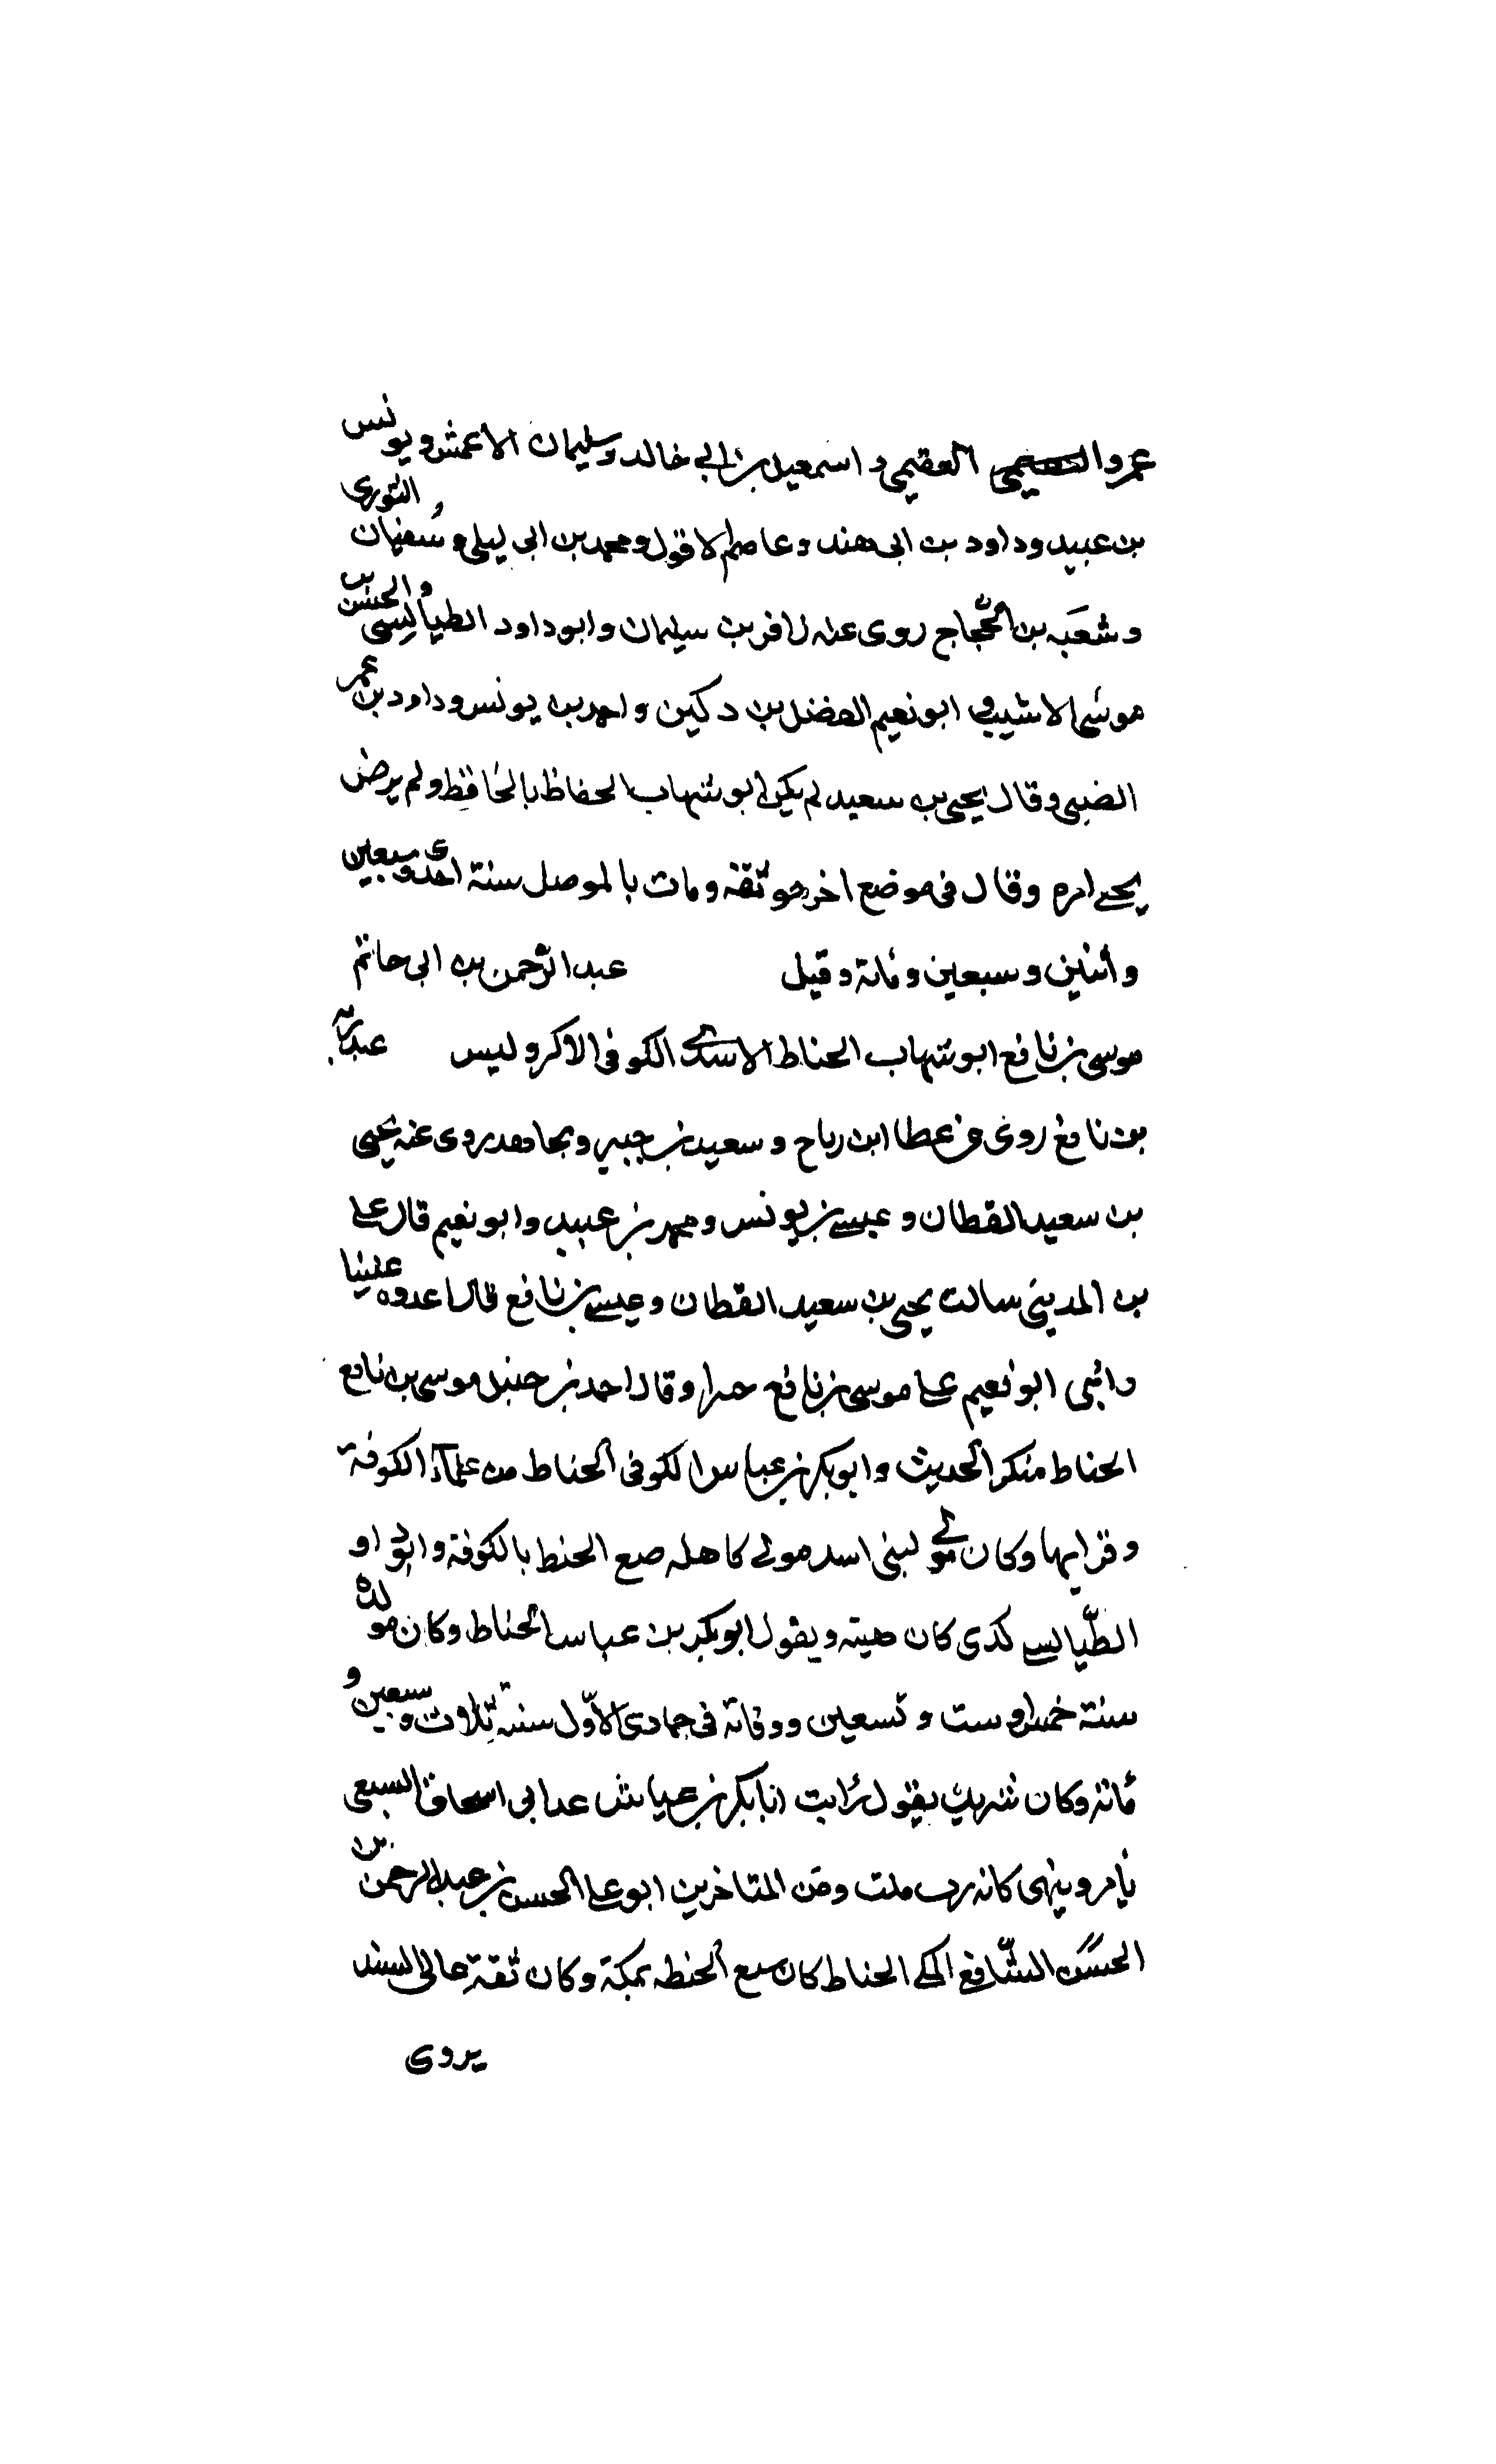 عمرو العقيمي و اسمعيل بن ابي خالد وسليمان الاعمش ويونس
بن عبيد وداود بن ابي هند وعاصم لاقول ومحمد بن ابي ليلي وسُفيان الثوري
وشعَبه بن الحجّاج روى عنه زافر بن سليمان وابوداود الطيالسي والحسن بن
موسى الاشيب و ابونعيم الفضل بن دكين واحمد بن يونس وداود بن عمر
الضبي وقال يحيى بن سعيد لم يكن ابو شهاب الحفاظ بالحافظ ولم يرض
يحيى امره وقال في موضع اخر هو ثقة ومات بالموصل سنة احدى وسبعين
واثنين وسبعين ومائة وقيل عبد الرّحمن بن ابي حاتم
موسى بن نافع ابو شهاب الحناط الاسدي الكوفي الاكبر وليس عبد ربه
بن نافع روى عن عطا ابن رباح و سعيد بن جبير ومجاهد روى عنه يحيى
بن سعيد القطان و عيسى بن يونس ومحمد بن عبيد وابو نعيم قال على
بن المديني سالت يحيى بن سعيد القطان وعيسى بن نافع قال اعدوه علينا
واثنى ابو نعيم على موسى بن نافع وقال احمد بن حنبل موسى بن نافع
الحناط منكر الحديث وابوبكر بن عباس الكوفي الحناط من علماء الكوفة
وقرايها وكان مولى لبني اسد مولى كاهله الحنط بالكوفة
الطّيالسي كدى كان ويقول ابوبكر بن عباس الحناط وكان مولده
سنة خمس او ست و تسعين ووفاته في جمادى الاوّل سنة ثلاث وسبعين و
مائة وكان شريك يقول رَايت ابابكر بن عياش عدابي اسحاق السبيعي
يامر وينهى كانه رب ومن المتاخرين ابو على الحسن بن عبد الرحمن بن
الحسن الشّافع المكي الحناط كان الحنطه بمكة وكان ثقة عالى السند
يروى